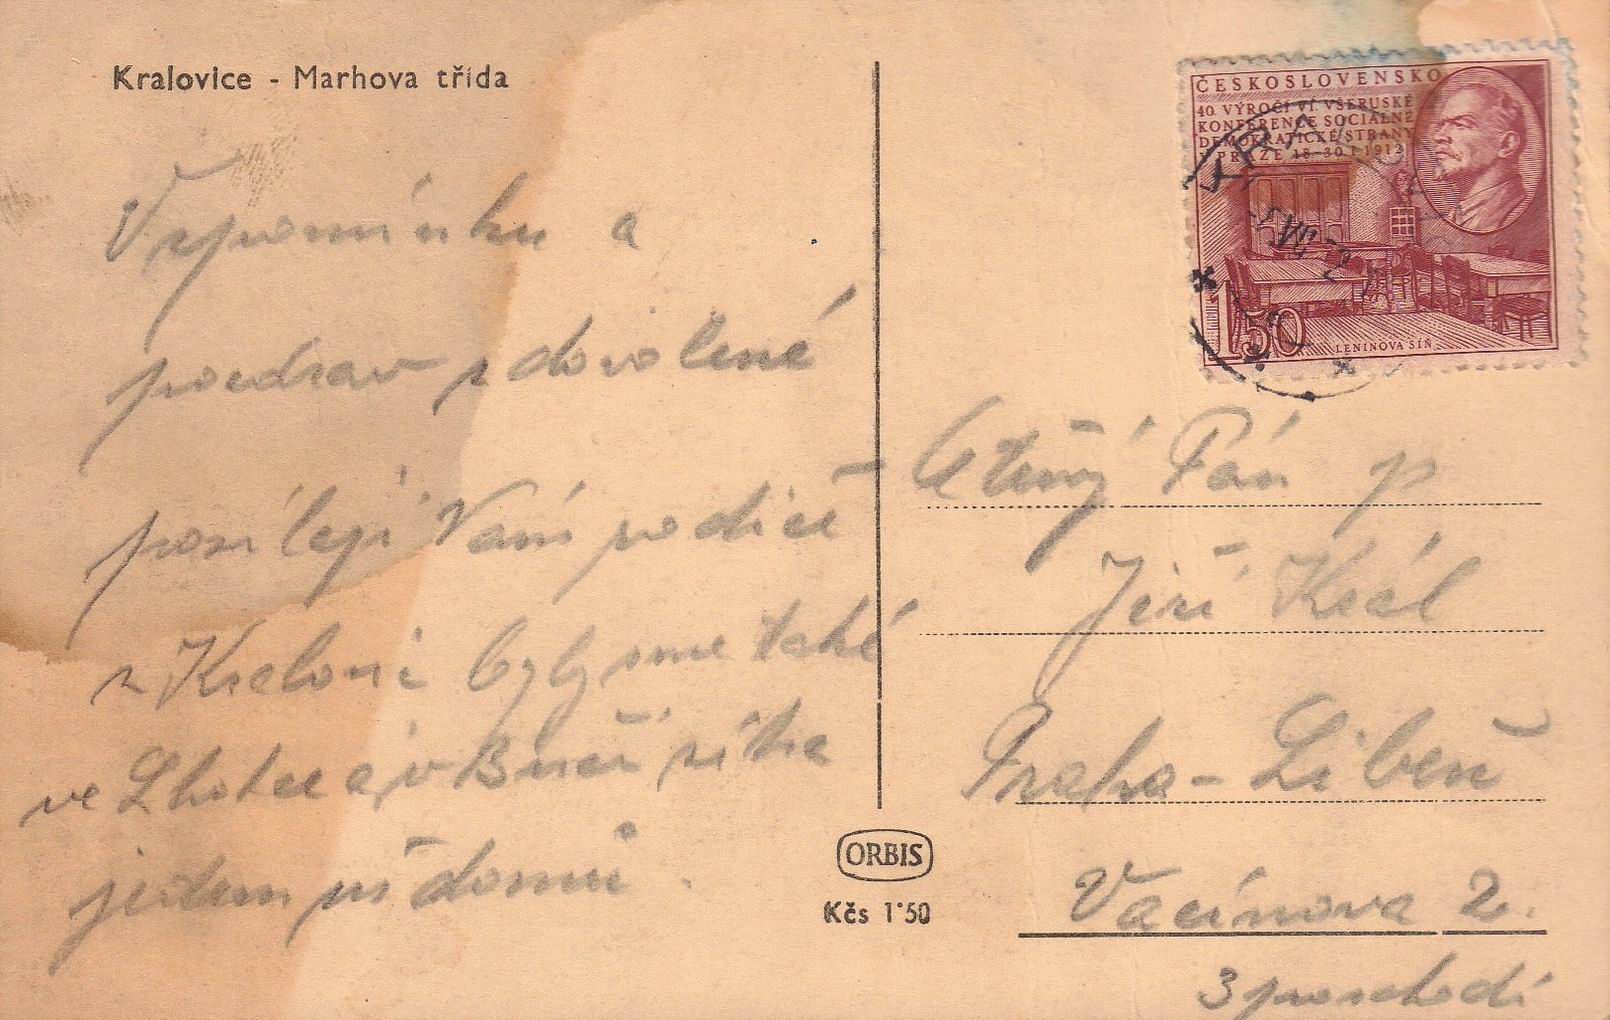 Kralovice - Marhova třída
Vzpomínku a
pozdrav z dovolené
posílají Vám rodiče
z Kralovic byly sme také
ve Lhotce a v Buči zítra
jedem už domu.
ORBIS
Kčs 1˙50
ČESKOSLOVENSKO
40. VÝROČÍ VI. VŠERUSKÉ
KONFERENCE SOCIÁLNĚ
DEMOKRATICKÉ STRANY
PRAZE 18-30.I.1912
1 50
LENINOVA SÍŇ
Ctěný Pán p
Jiří Král
Praha - Libeň
Vacínova 2.
3 poschodí